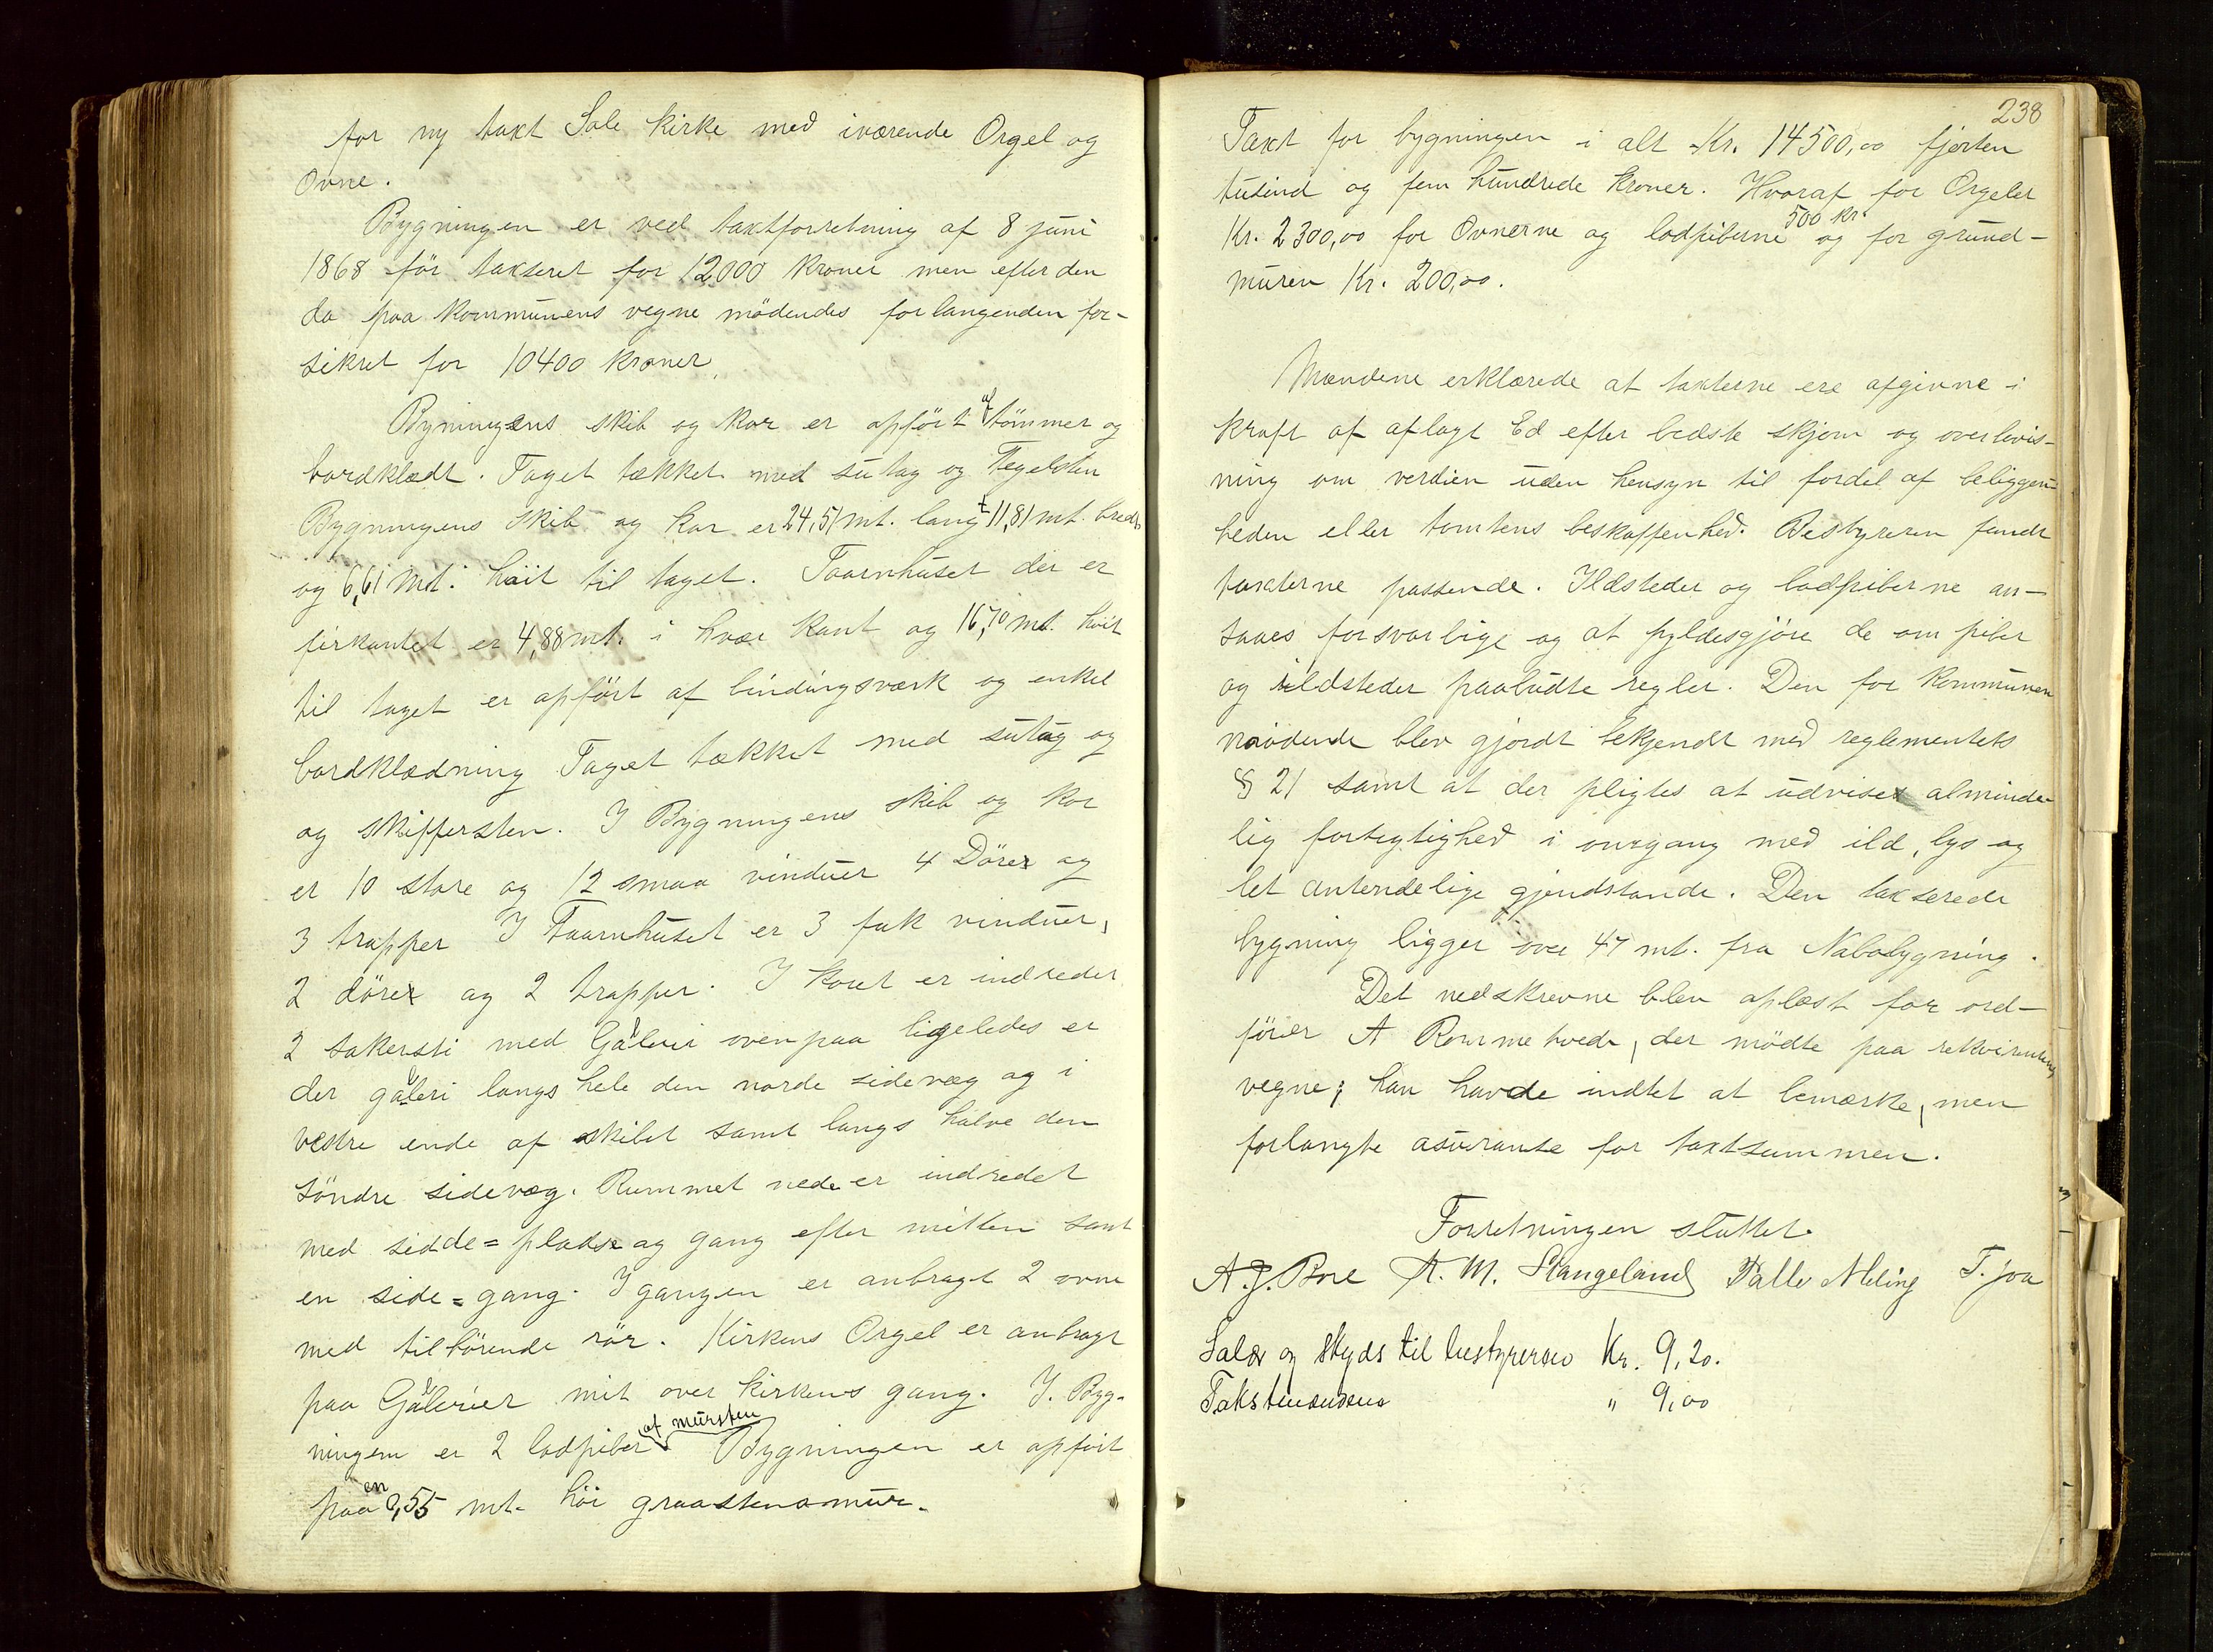 for ny taxt Sole kirke med iværende Orgel og
Ovne.
Bygningen er ved taxtforretning af 8 juni
1868 før takseret for 12000 kroner men efter den
da paa kommunens vegne mødendes forlangenden for-
sikret for 10400 kroner.
Bygningens skib og kor er opført af tømmer og
bordklædt. Taget tækket med sutag og Tegelsten
Bygningens skib og kor er 24,51 mt. langt 11,81 mt. bredt
og 6,61 mt. høit til taget. Taarnhuset der er
firkantet er 4,88 mt. i hver kant og 16,70 mt. høit
til taget er opført af bindingsværk og enkel
bordklædning Taget tækket med sutag og
og skiffersten. I Bygningens skib og kor
er 10 store og 12 smaa vinduer 4 Døre og
3 trapper I Taarnhuset er 3 fak vinduer,
2 døre og 2 trapper. I koret er indredet
2 sakersti med Galleri ovenpaa ligeledes er
der galleri langs hele den nordre sidevæg og i
vestre ende af skibet samt langs halve den
søndre sidevæg. Rummet nede er indredet
med sidde=pladse og gang efter mitten samt
en side=gang. I gangen er anbragt 2 ovne
med tilhørende rør. Kirkens Orgel er anbragt
paa Gallerier mit over kirkens gang. I. Byg-
ningen er 2 lodpiber af mursten Bygningen er opført
paa en 0,55 mt. høi graastensmur.
238
Taxt for bygningen i alt Kr. 14500,00 fjorten
tusind og fem hundrede kroner. Hvoraf for Orgelet
Kr. 2300,00 for Ovnerne og lodpiberne 500 kr. og for grund-
muren Kr. 200,00.
Mændene erklærede at taxterne ere afgivne i
kraft af aflagt Ed efter bedste skjøn og overbevis-
ning om verdien uden hensyn til fordel af beliggen-
heden eller tomtens beskaffenhed. Bestyreren fandt
taxterne passende. Ildsteder og lodpiberne an-
saaes forsvarlige og at fyldesgjøre de om piber
og ildsteder paabudte regler. Den for kommunen
mødende blev gjordt bekjendt med reglementets
§ 21 samt at der pligtes at udvise alminde-
lig forsigtighed i omgang med ild, lys og
let antendelige gjendstande. Den takserede
bygning ligger over 47 mt. fra Nabobygning.
Det nedskrevne blev oplæst for ord-
fører A Rommetvedt, der mødte paa rekvirentens
vegne; han havde indtet at bemærke, men
forlangte asuranse for taxtsummen.
Forretningen sluttet.
A. J. Bore A. M. Stangeland Palle Meling T. Joa
Salær og skyds til bestyreren Kr. 9,20.
Takstmændene " 9,00